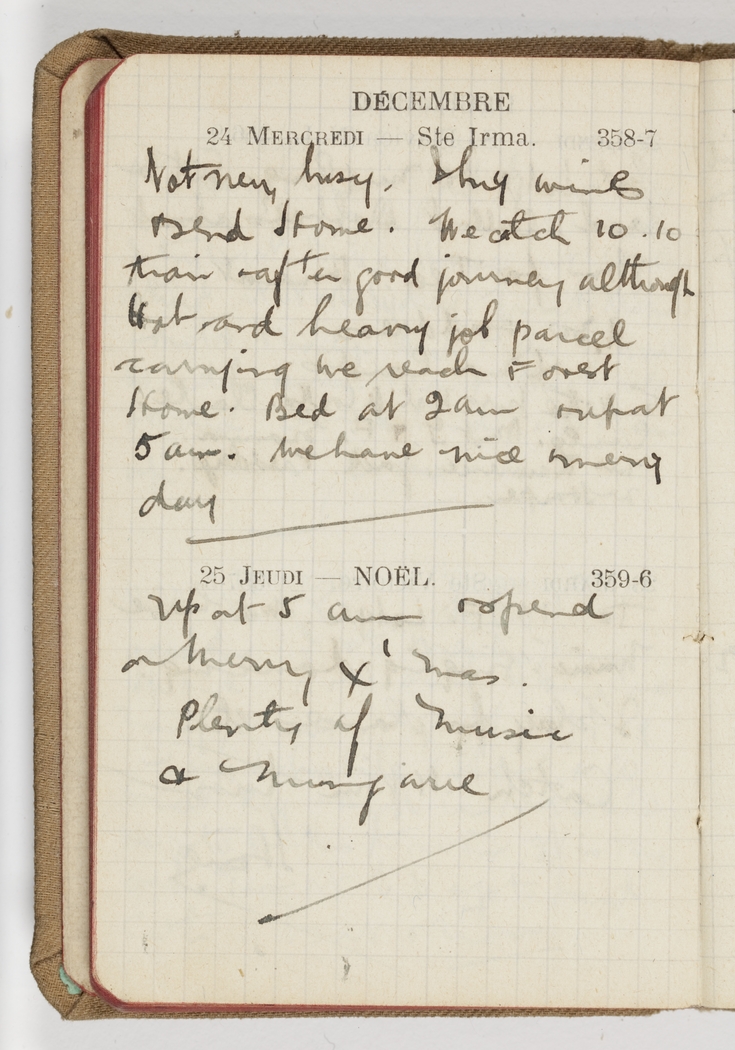 DÉCEMBRE
24 MERCREDI — Ste Irma. 358-7
Not very busy. I buy wines
& send Home. We catch 10.10
train & after good journey although
Hot and heavy job parcel
carrying we reach Forest
Home. Bed at 2am & up at
5am. We have nice merry
day
25 JEUDI — NOËL. 359-6
Up at 5 am & spend
a Merry X'mas.
Plenty of Music
&